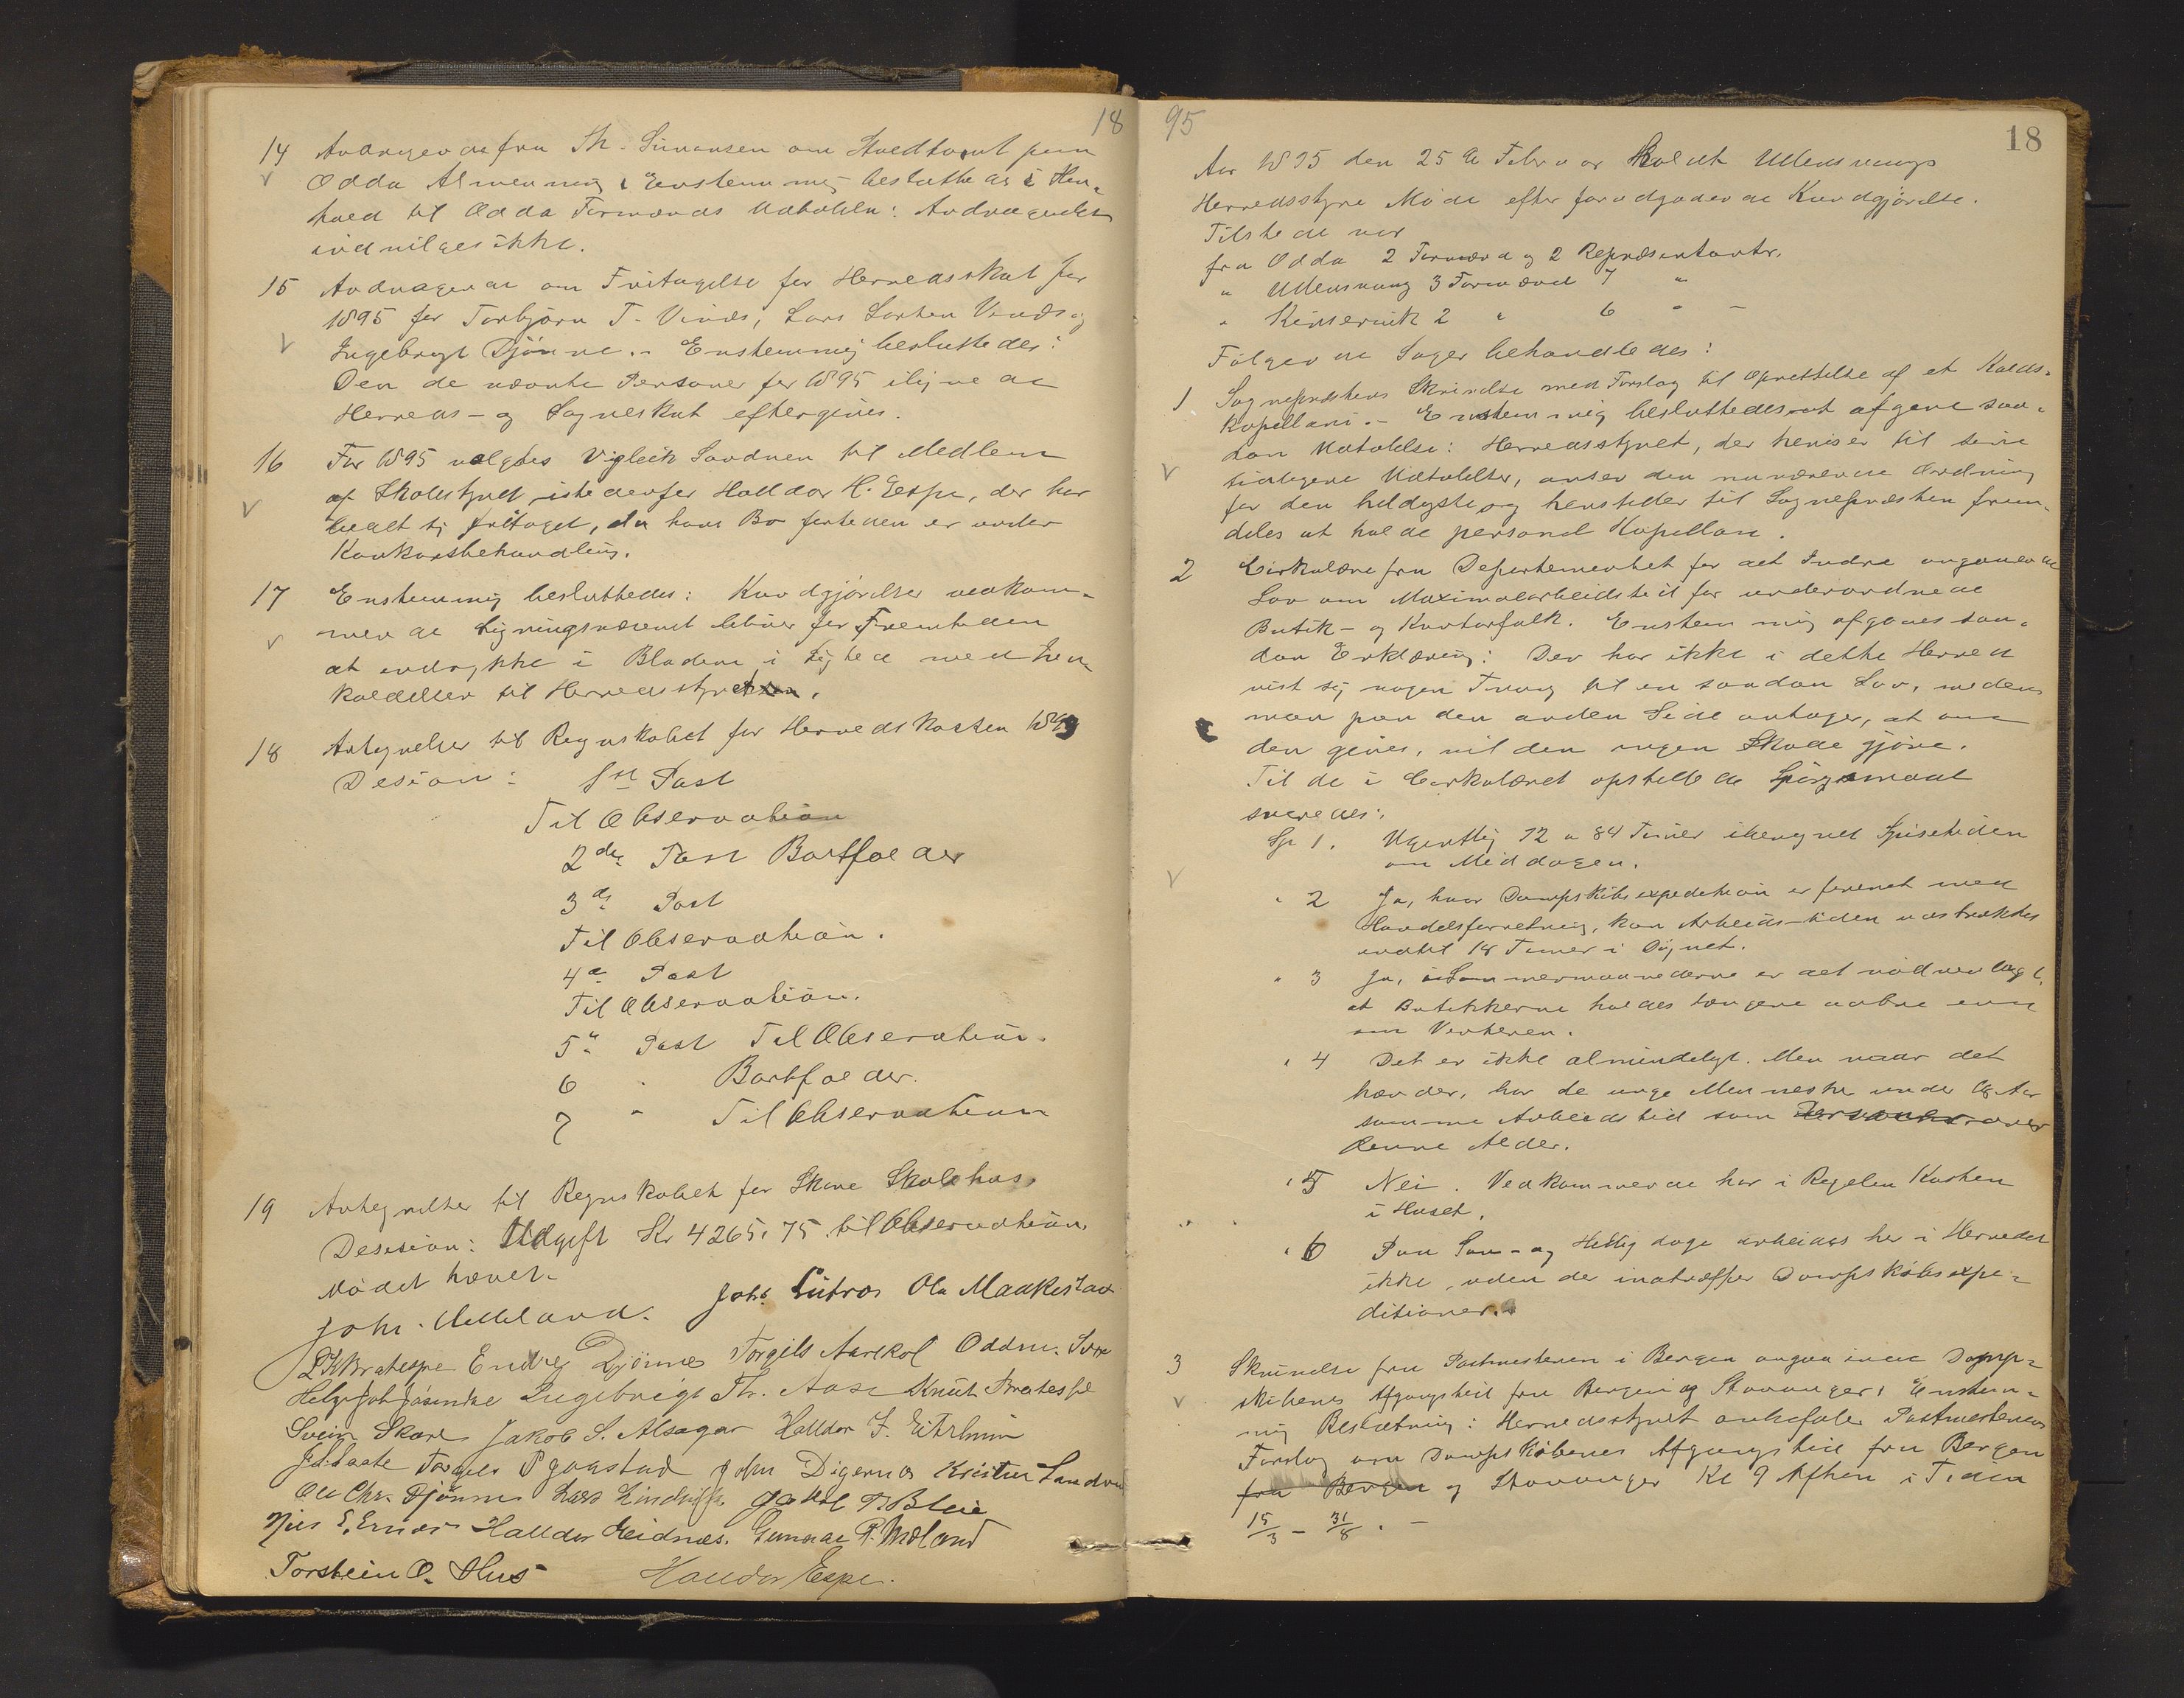 18
14 Andragende fra Th. Simonsen om Hustomt paa
Odda Almenning. Enstemmig besluttedes i Hen-
hold til Odda Formænds Udtalelse: Andragendet
indvilges ikke.
15 Andragende om Fritagelse for Herredsskat for
1895 for Torbjørn T. Vinæs, Lars Larsen Vinæs og
Ingebrigt Djønne. - Enstemmig besluttedes:
Den de nævnte Personer for 1895 ilignede
Herreds- og Sogneskat eftergives.
16 For 1895 valgtes Vigleik Sandven til Medlem
af Skolestyret istedenfor Halldor H. Espe, der har
bedt sig fritaget, da hans Bo fortiden er under
Konkursbehandling.
17 Enstemmig besluttedes: Kundgjørelser vedkom-
mende Ligningsvæsenet bliver for Fremtiden
at indrykke i Bladene i Lighed med Ind-
kaldelser til Herredsstyret.
18 Antegnelser til Regnskabet for Herredskassen 1893
Desision: 1ste Post
Til Observation
2den Post Bortfalder
3de Post
Til Observation.
4de Post
Til Observation.
5te Post Til Observation.
6 " Bortfalder.
7 " Til Observation
19 Antegnelser til Regnskabet for Skare Skolehus.
Desision: Udgift Kr 4265,75 til Observation.
Mødet hævet.
Johs. Lutro Ola Maakestad
John. Aelland.
Bratespe Endre Djønne Torgils Aarekol Oddm.
Helge Joh Jåstad Ingebrigt Th. Aase Knut Bratespe
Svein Skare Jakob S. Alsager Halldor J. Eitrheim
Torgils P Gaastad John Digernes Kristen Sandven
Ole Chr. Djønne Lars Jakob P. Bleie
Nils S. Ernes Halldor Meidnes. Gunnar P. Mæland
Torstein O. Hus Halldor Espe.
95
18
Aar 1895 den 25de Februar holdt Ullensvangs
Herredsstyre Møde efter forudgaaende Kundgjørelse.
Tilstede var
fra Odda 2 Formænd og 2 Repræsentanter.
" Ullensvang 3 Formænd 7 "
" Kinservik 2 " 6 " -
Følgende Sager behandledes:
1 Sognepræstens Skrivelse med Forslag til Oprettelse af et Kalds-
kapellani. - Enstemmig besluttedes at afgive saa-
dan Udtalelse: Herredsstyret, der henviser til sine
tidligere Udtalelser, anser den nuværende Ordning
for den heldigste og henstiller til Sognepræsten frem-
deles at holde personel Kapellan.
2 Cirkulære fra Departementet for det Indre angaaende
Lov om Maximalarbeidstid for underordnede
Butik- og Kontorfolk. Enstemmig afgaves saa-
dan Erklæring: Der har ikke i dette Herred
vist sig nogen Trang til en saadan Lov, medens
man paa den anden Side antager, at om
den gives, vil den ingen Skade gjøre.
Til de i Cirkulæret opstillede Spørgsmaal
svaredes:
Sp 1. Ugentlig 72 a 84 Timer iberegnet Spisetiden
om Middagen.
" 2 Ja, hvor Dampskibsexpedition er forenet med
Handelsforretning, kan Arbeids-tiden udstrækkes
indtil 18 Timer i Døgnet.
" 3 Ja, i Sommermaanederne er det nødvendigt,
at Butikkerne holdes længere aabne end
om Vinteren.
" 4 Det er ikke almindeligt. Men naar det
hænder, har de unge Mennesker under 18 Aar
samme Arbeidstid som Personer over
denne Alder.
" 5 Nei. Vedkommende har i Regelen Kosten
i Huset.
" 6 Paa Søn- og Helligdage arbeides her i Herredet
ikke, uden der indtræffer Dampskibsexpe-
ditioner.
3 Skrivelse fra Postmesteren i Bergen angaaende Damp-
skibenes Afgangstid fra Bergen og Stavanger. Enstem-
mig Beslutning: Herredsstyret anbefaler Postmesterens
Forslag om Dampskibenes Afgangstid fra Bergen
fra Bergen og Stavanger Kl 9 Aften i Tiden
15/3 - 31/8. -